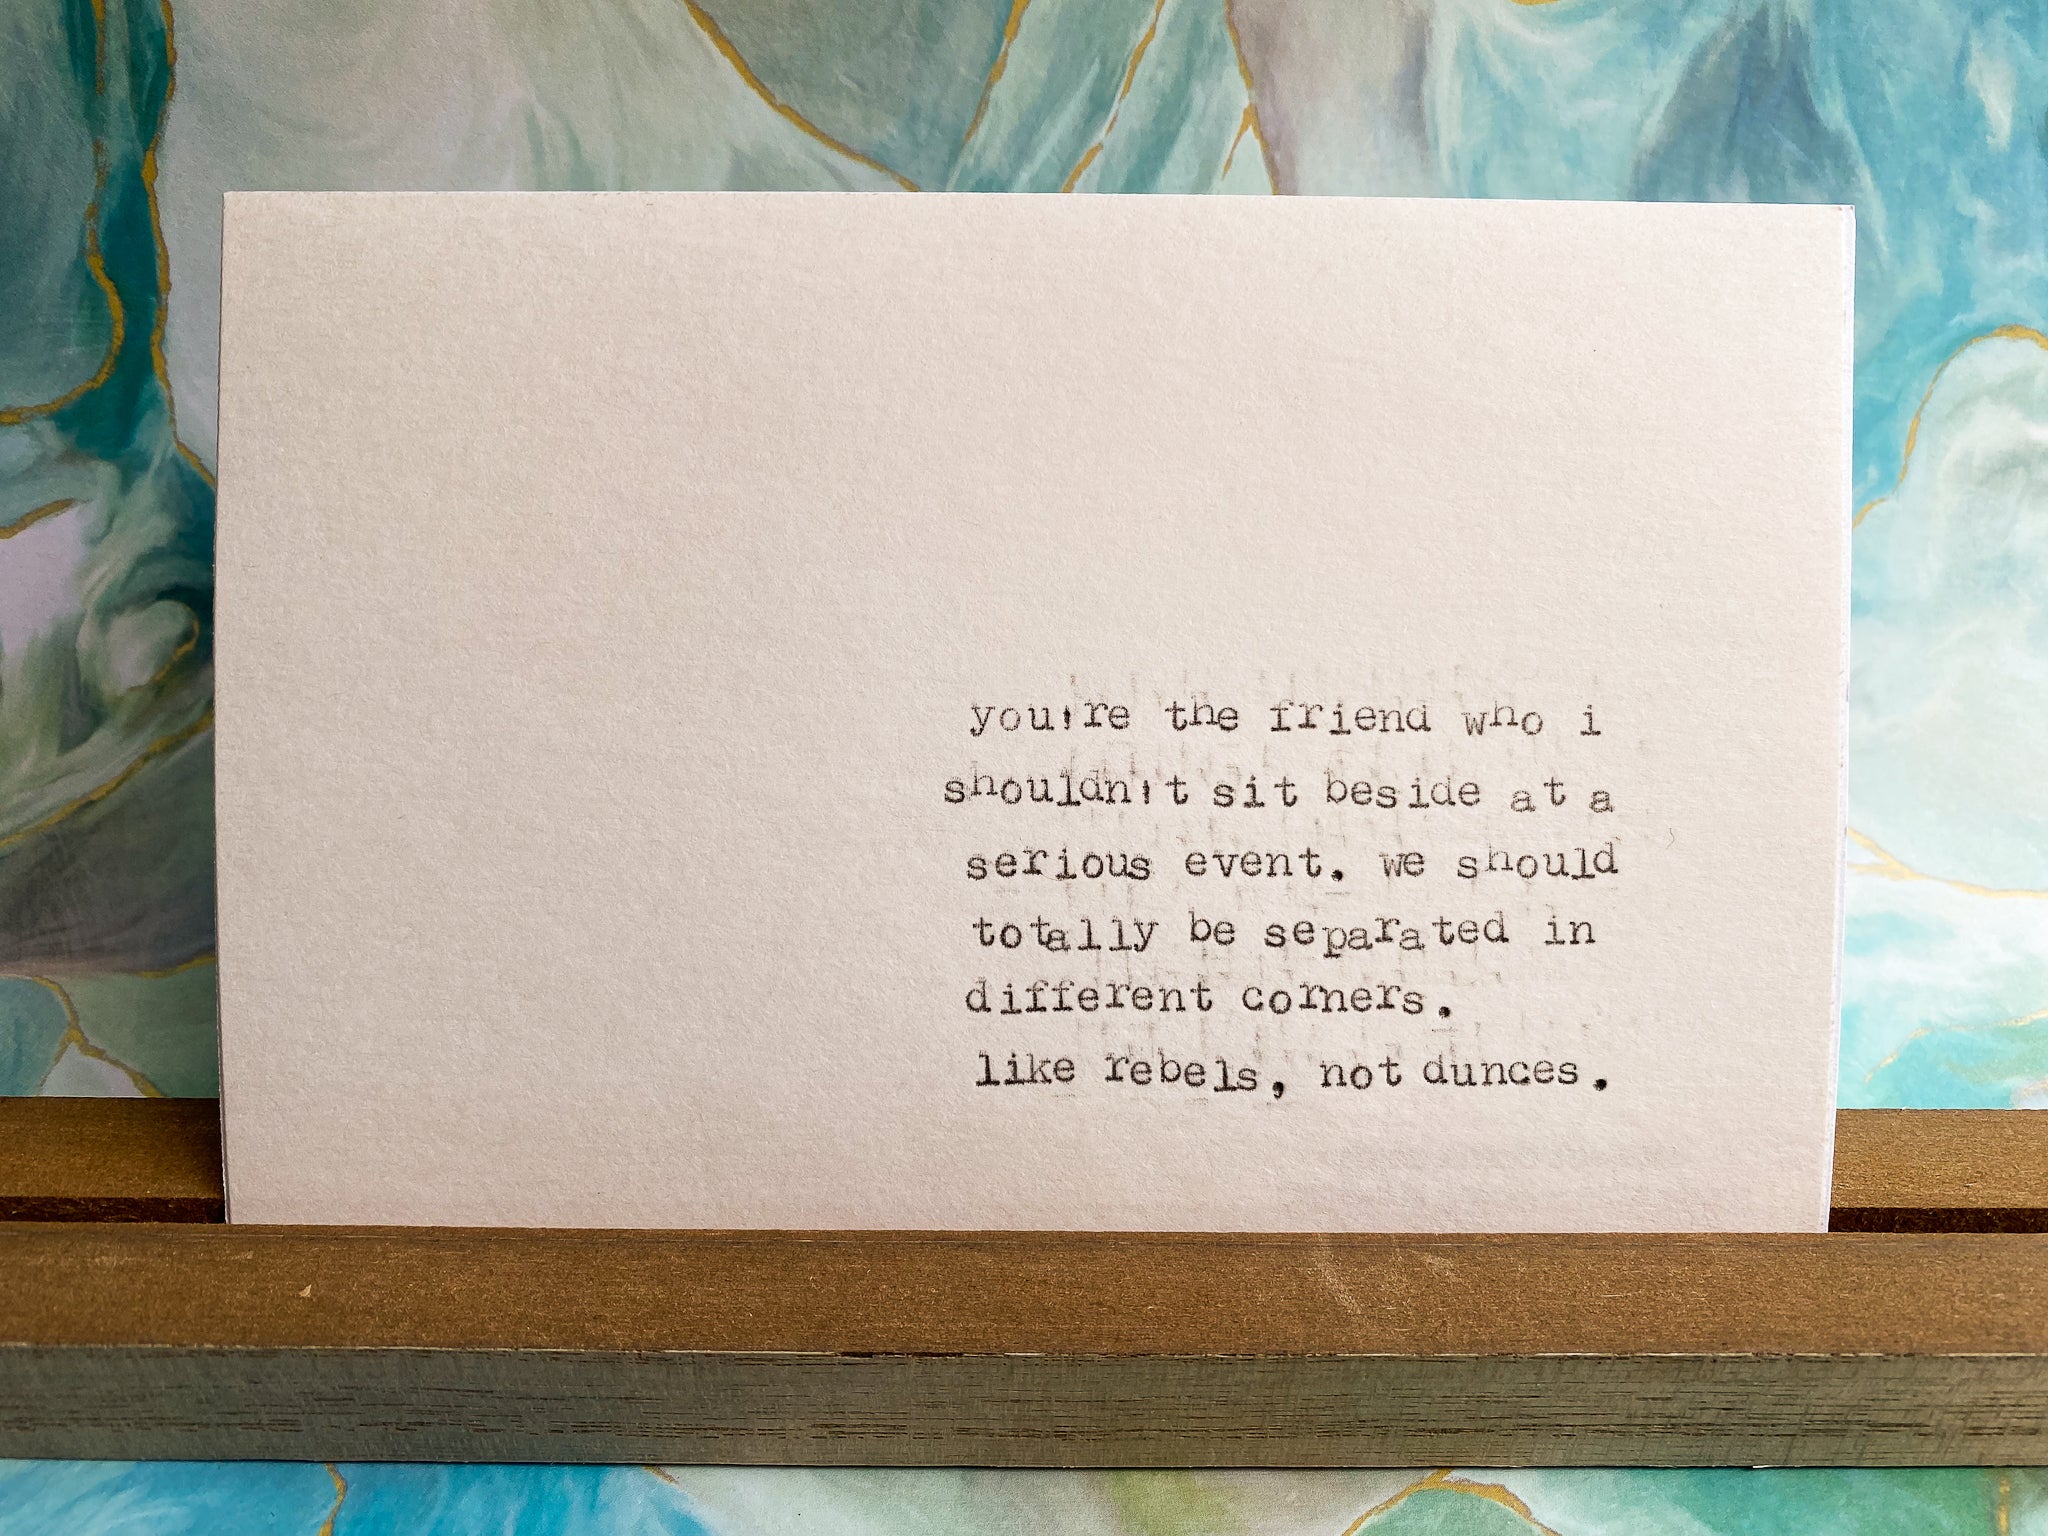 you're the friend who i
shouldn't sit beside at a
serious event. we should
totally be separated in
different corners.
like rebels, not dunces.